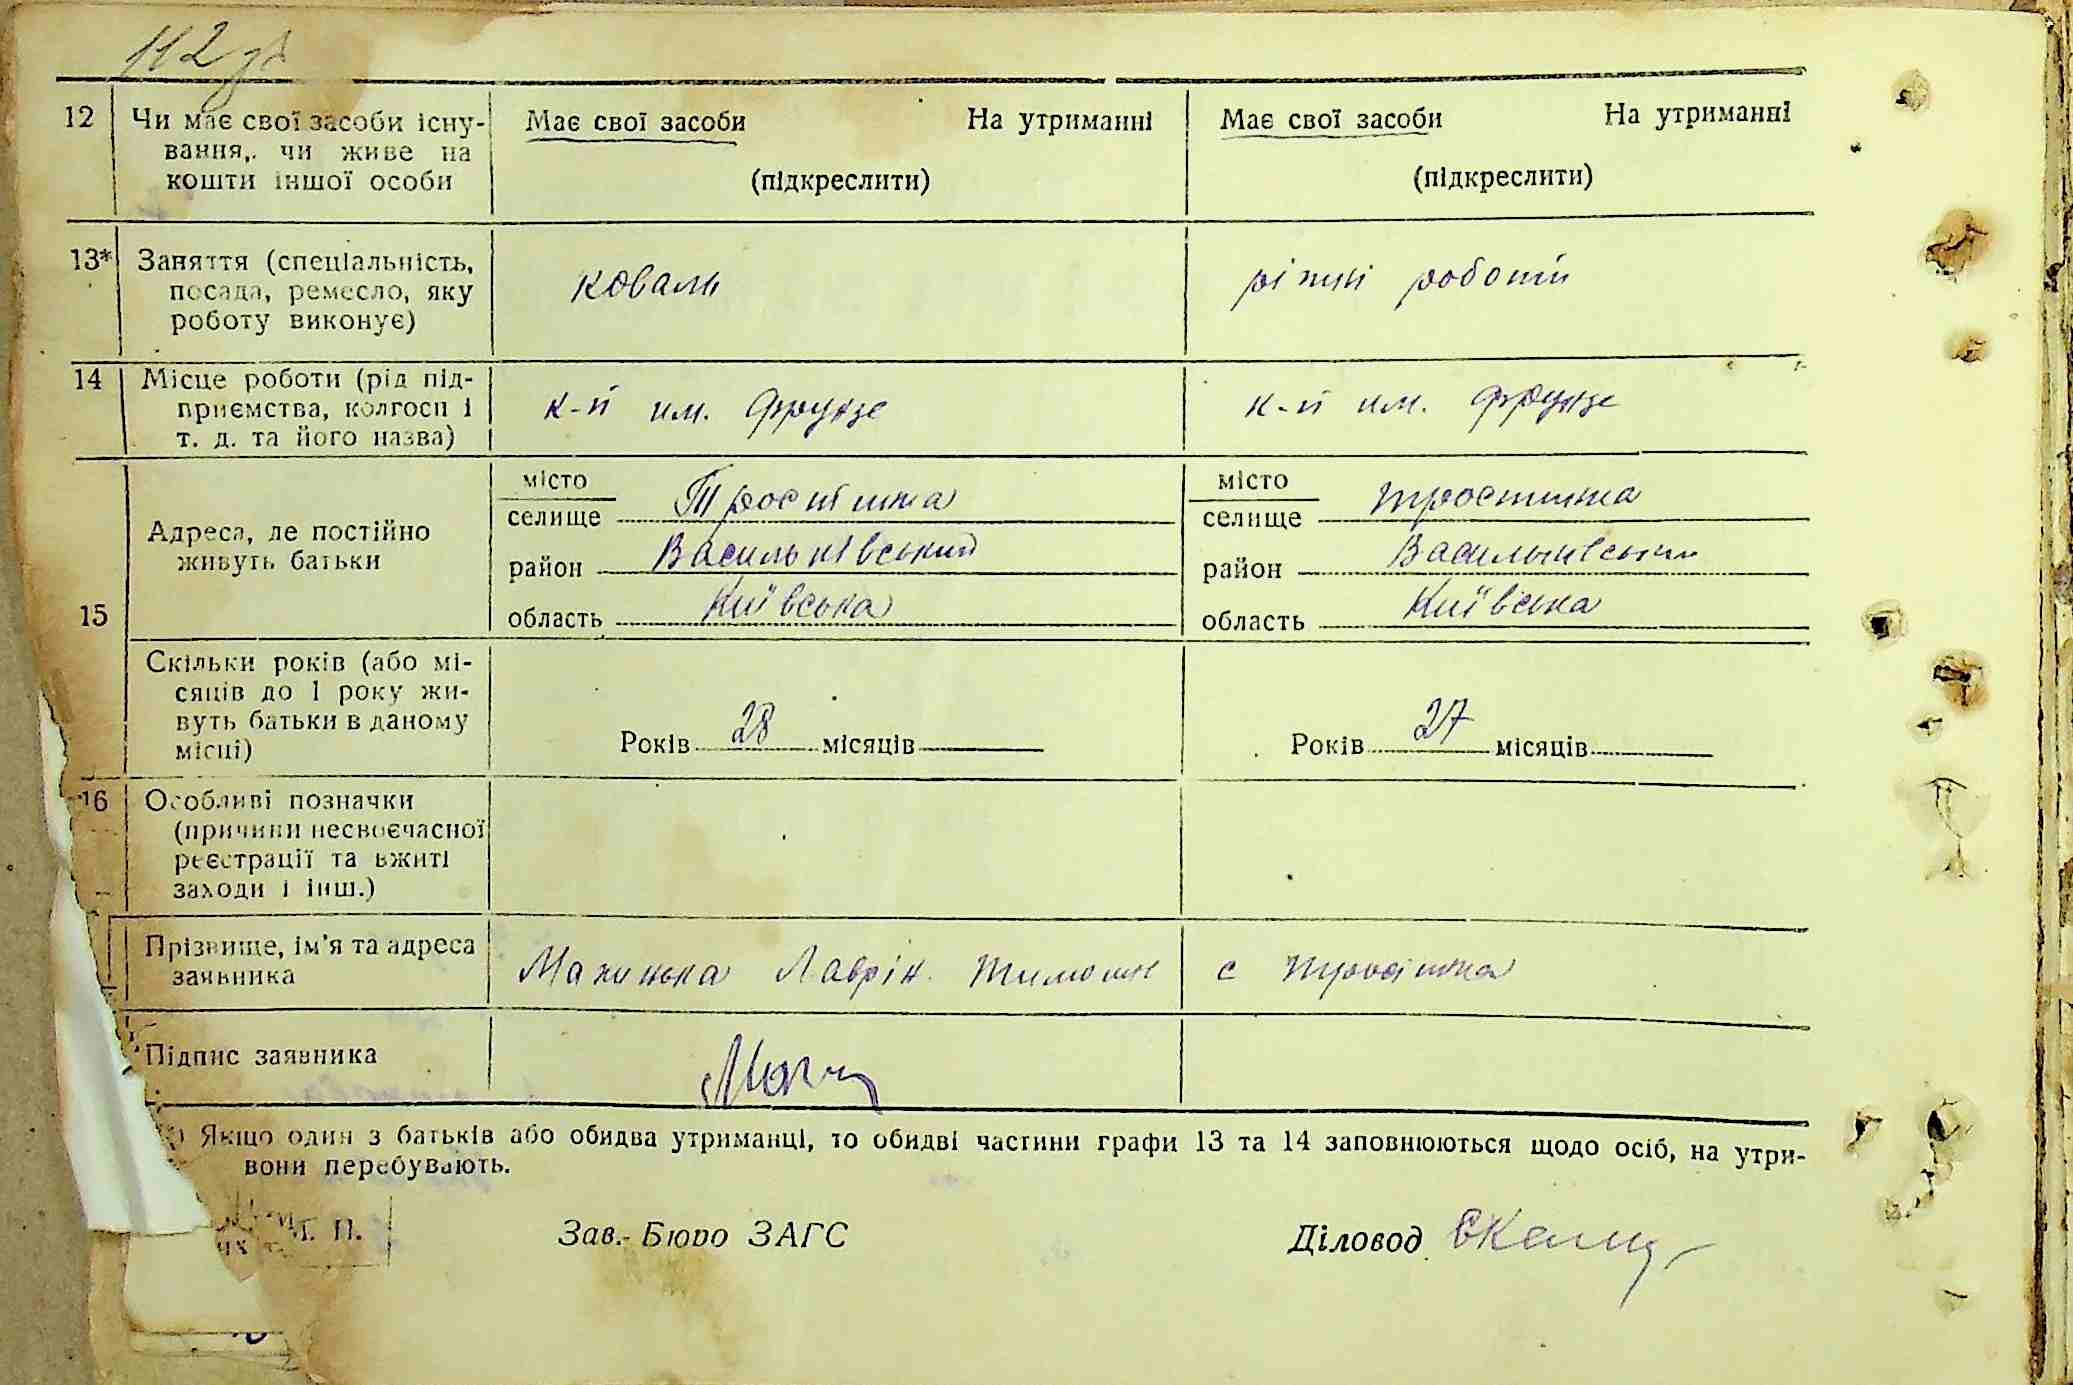 112 зв
12 Чи має свої засоби існу- Має свої засоби На утриманні Має свої засоби На утриманні
вання, чи живе на
кошти іншої особи (підкреслити) (підкреслити)
13* Заняття (спеціальність, коваль різні роботи
посада, ремесло, яку
роботу виконує)
14 Місце роботи (рід під- к-п им. Фрунзе к-п им. Фрунзе
приємства, колгосп і
т. д. та його назва)
15 Адреса, де постійно
живуть батьки
місто
селище Тростинка
район Васильківський
область Київська
місто
селище Тростинка
район Васильківський
область Київська
Скільки років (або мі-
сяців до 1 року жи-
вуть батьки в даному
місці)
Років 28 місяців
Років 27 місяців
16 Особливі позначки
(причини несвоєчасної
реєстрації та вжиті
заходи і інш.)
Прізвище, ім'я та адреса Лаврін Тимош с Тростинка
заявника
Підпис заявника
*) Якщо один з батьків або обидва утриманці, то обидві частини графи 13 та 14 заповнюються щодо осіб, на утри-
вони перебувають.
М. П. Зав. Бюро ЗАГС Діловод